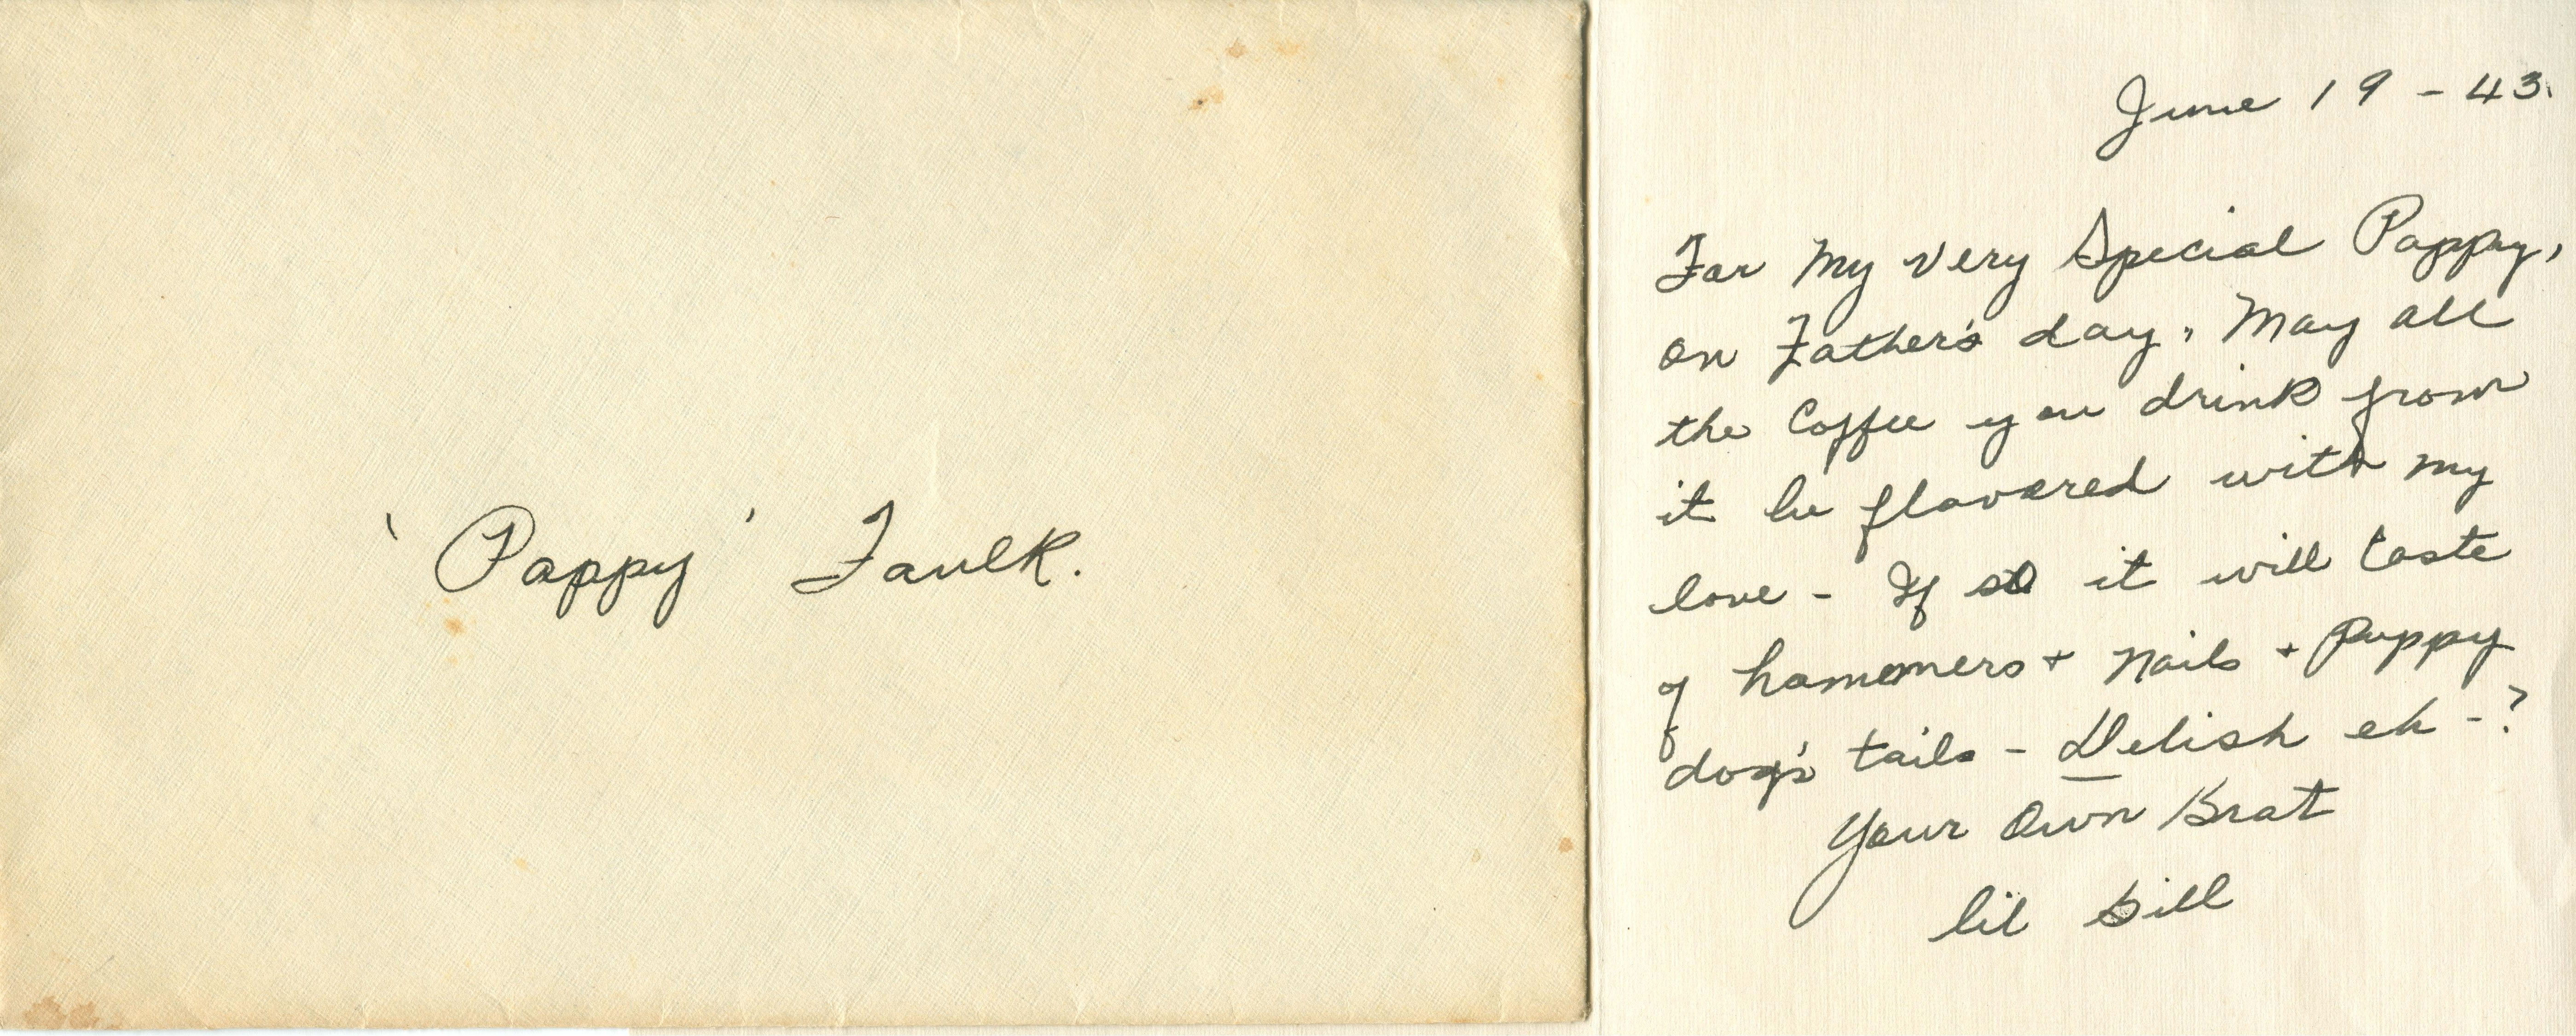 'Pappy' Faulk.
June 19 - 43.
For My Very Special Pappy,
on Father's day, May all
the Coffee you drink from
it be flavored with my
love - If so it will taste
of hammers + Nails + Puppy
dog's tails - Delish eh - ?
Your Own Brat
lil Bill